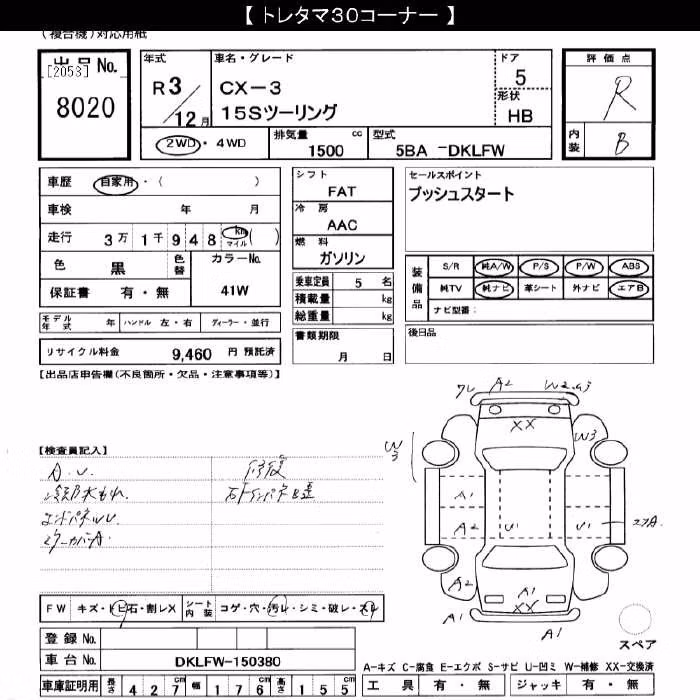 【 トレタマ30コーナー 】
(複合機)対応用紙
出品 No.
[2053]
8020
年式
R 3
12月
車名・グレード
CX-3
15Sツーリング
ドア
5
形状
HB
評価点
R
内装
B
2WD・4WD
排気量 cc
1500
型式
5BA -DKLFW
車歴 自家用・( )
車検 年 月
走行 3万 1千 9 4 8 km マイル ( )
色 黒 色替
カラーNo.
41W
保証書 有・無
モデル年式 年 ハンドル 左・右 ディーラー・並行
リサイクル料金 9,460 円 預託済
シフト
FAT
冷房
AAC
燃料
ガソリン
乗車定員 5 名
積載量 kg
総重量 kg
書類期限
月 日
セールスポイント
プッシュスタート
装備品
S/R 純A/W P/S P/W ABS
純TV 純ナビ 革シート 外ナビ エアB
ナビ型番:
後日品
【出品店申告欄(不良箇所・欠品・注意事項等)】
【検査員記入】
A.U.
修復
FW キズ・トビ石・割レX
シート内装 コゲ・穴・汚レ・シミ・破レ・スレ
登録 No.
車台 No. DKLFW-150380
車庫証明用 長さ 4 2 7 cm 幅 1 7 6 cm 高さ 1 5 5 cm
A2
XX
W3
W3
A1
A2
U1
U1
A2
A1
XX
A1
A1
スペア
A-キズ C-腐食 E-エクボ S-サビ U-凹ミ W-補修 XX-交換済
工具 有・無 ジャッキ 有・無